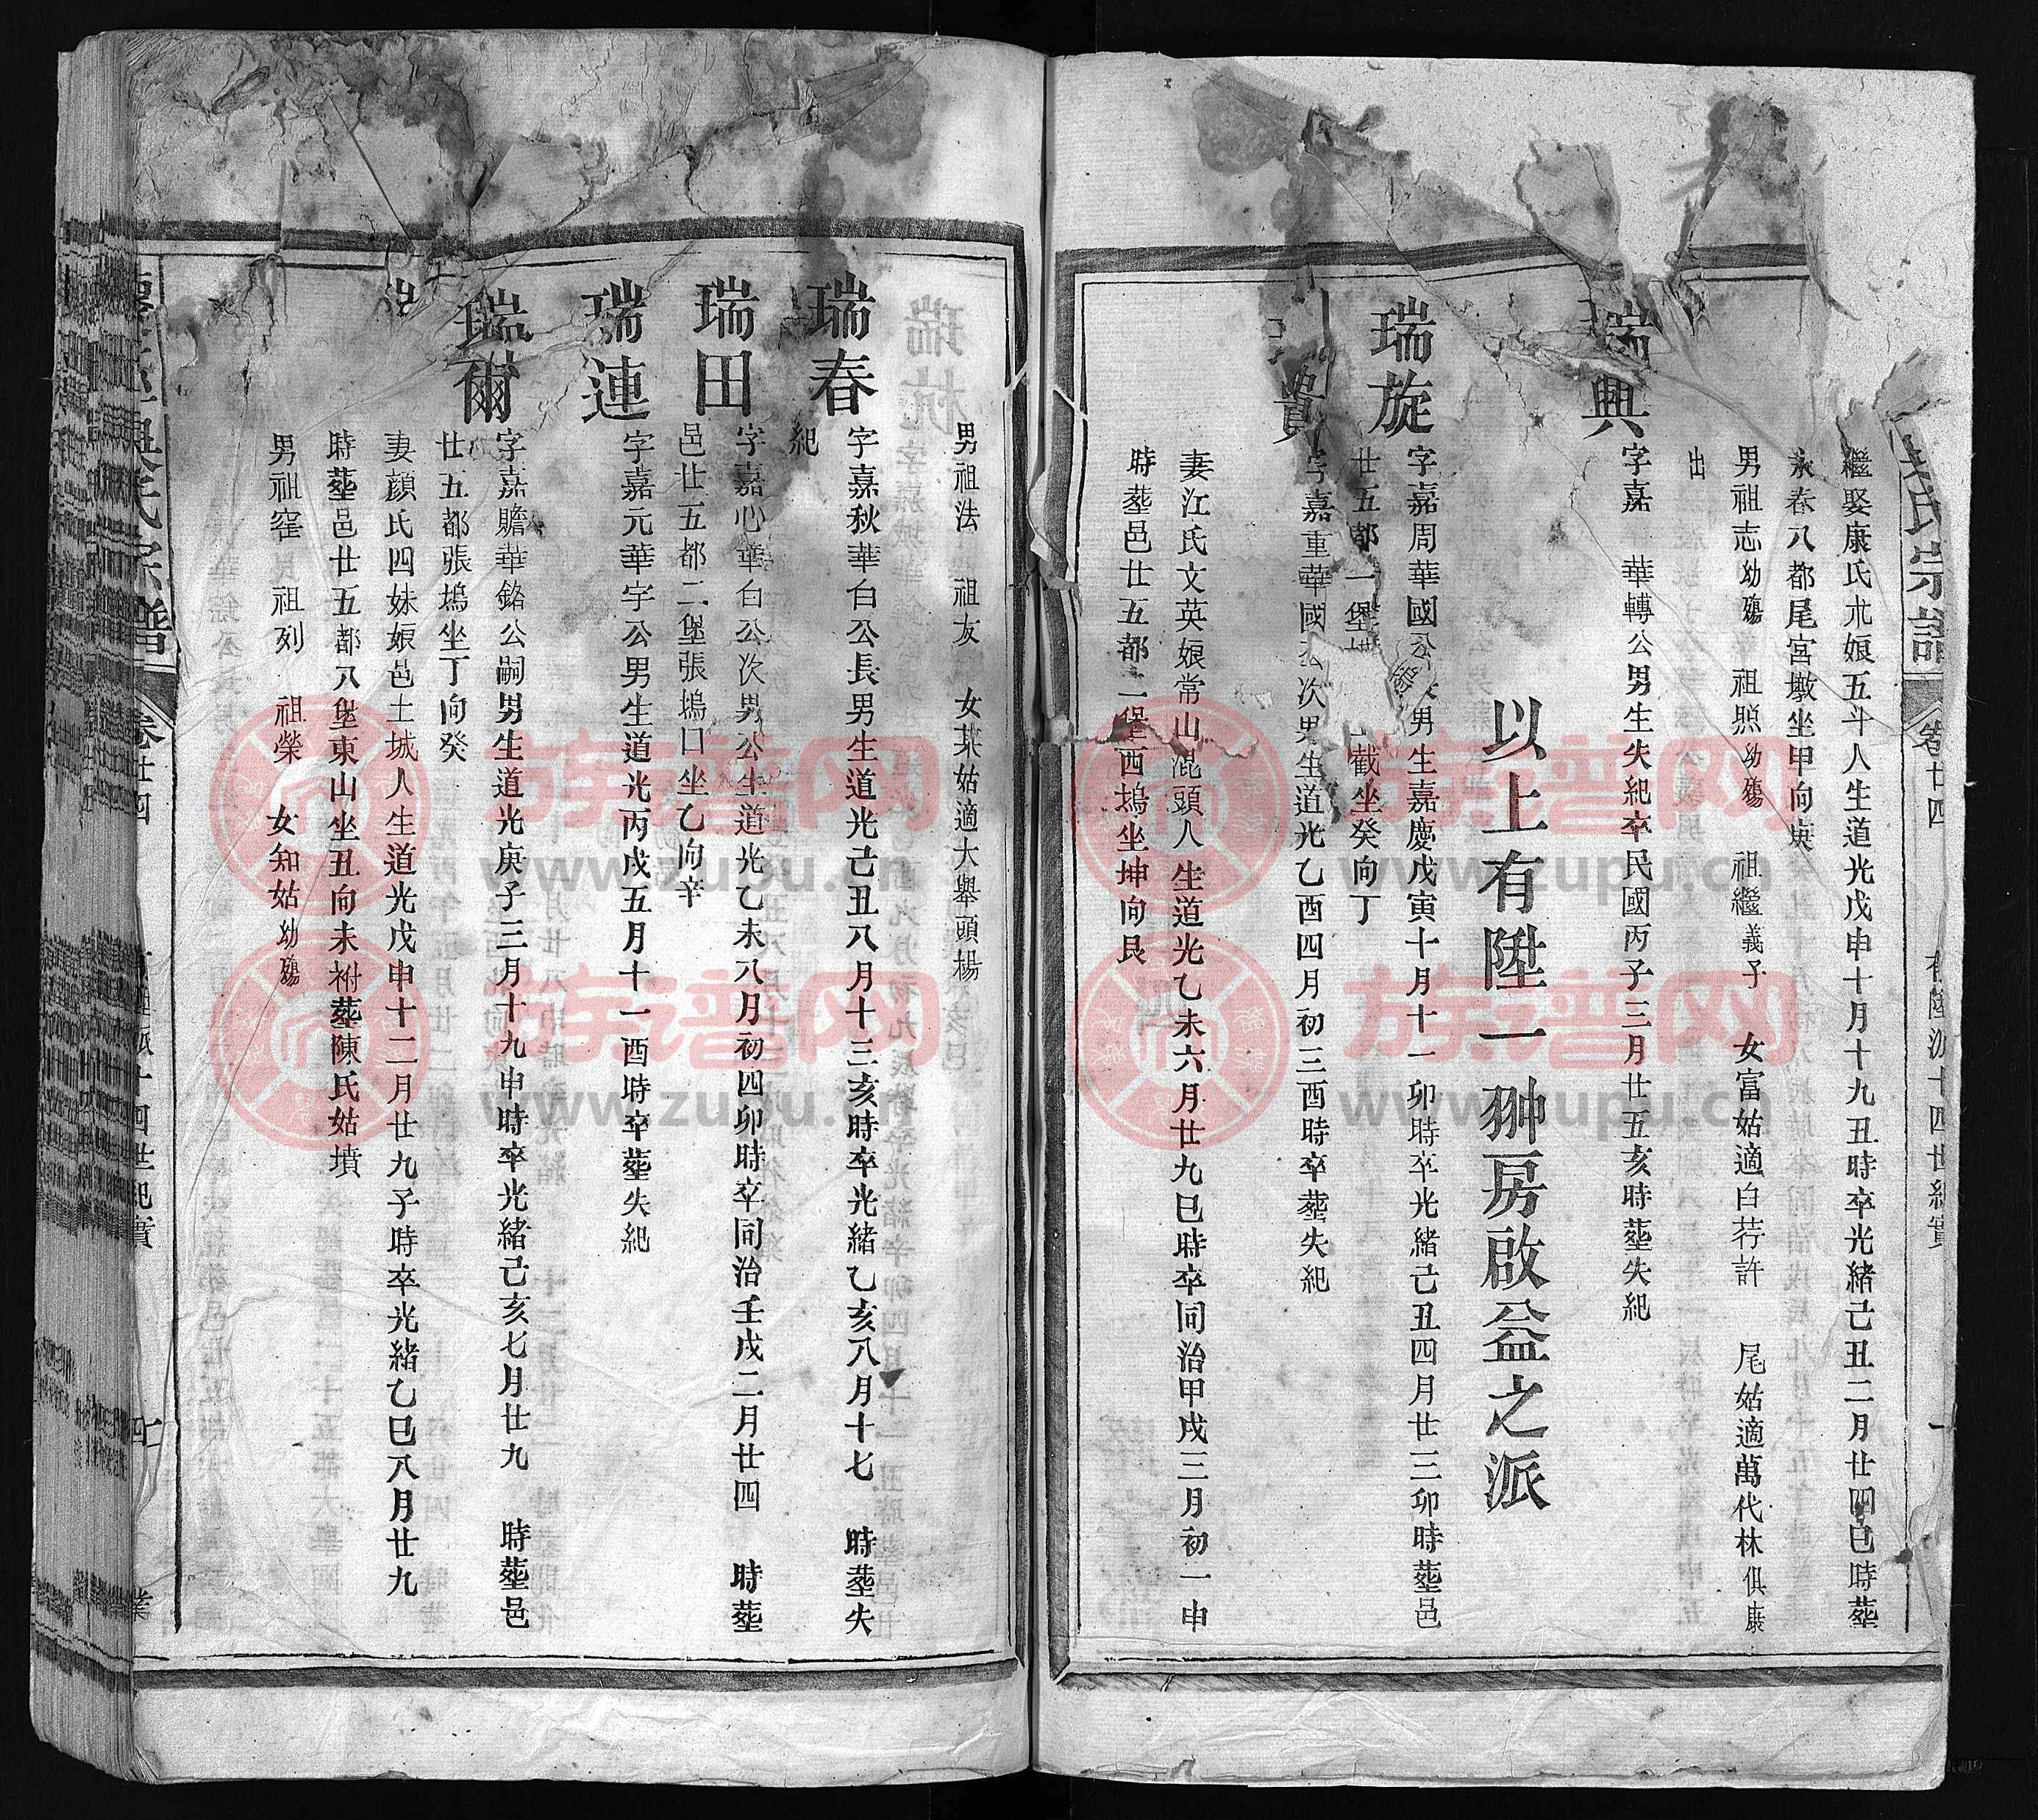 氏宗譜 卷廿四
繼娶康氏朮娘五斗人生道光戊申十月十九丑時卒光緒己丑二月廿四巳時塟
永春八都尾宮墩坐甲向庚
男祖志幼殤 祖照幼殤 祖繼義子 女富姑適白荇許 尾姑適萬代林俱康
出
瑞興
字嘉 華轉公男生失紀卒民國丙子三月廿五亥時塟失紀
以上有陞一翀房啟益之派
瑞旋
字嘉周華國公 男生嘉慶戊寅十月十一卯時卒光緒己丑四月廿三卯時塟邑
廿五都一堡 截坐癸向丁
貴
字嘉重華國公次男生道光乙酉四月初三酉時卒塟失紀
妻江氏文英娘常山混頭人生道光乙未六月廿九巳時卒同治甲戌三月初一申
時塟邑廿五都一堡西塢坐坤向艮
男祖法 祖友 女某姑適大舉頭楊
瑞春
字嘉秋華白公長男生道光己丑八月十三亥時卒光緒乙亥八月十七 時塟失
紀
瑞田
字嘉心華白公次男公生道光乙未八月初四卯時卒同治壬戌二月廿四 時塟
邑廿五都二堡張塢口坐乙向辛
瑞連
字嘉元華宇公男生道光丙戌五月十一酉時卒塟失紀
瑞爾
字嘉贍華鉻公嗣男生道光庚子三月十九申時卒光緒己亥七月廿九 時塟邑
廿五都張塢坐丁向癸
妻顏氏四妹娘邑土城人生道光戊申十二月廿九子時卒光緒乙巳八月廿九
時塟邑廿五都八堡東山坐丑向未祔塟陳氏姑墳
男祖窪 祖列 祖榮 女知姑幼殤
吳氏宗譜 卷廿四 十四世紀實
族譜网
www.zupu.cn
族譜网
www.zupu.cn
族譜网
www.zupu.cn
族譜网
www.zupu.cn